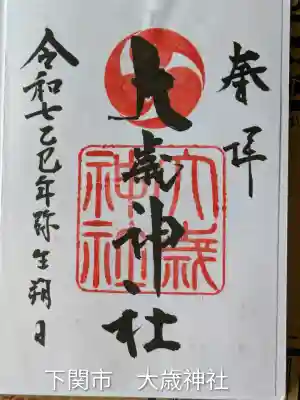 奉拝
大歳神社
大歳神社
令和七乙巳年弥生朔日
下関市　大歳神社